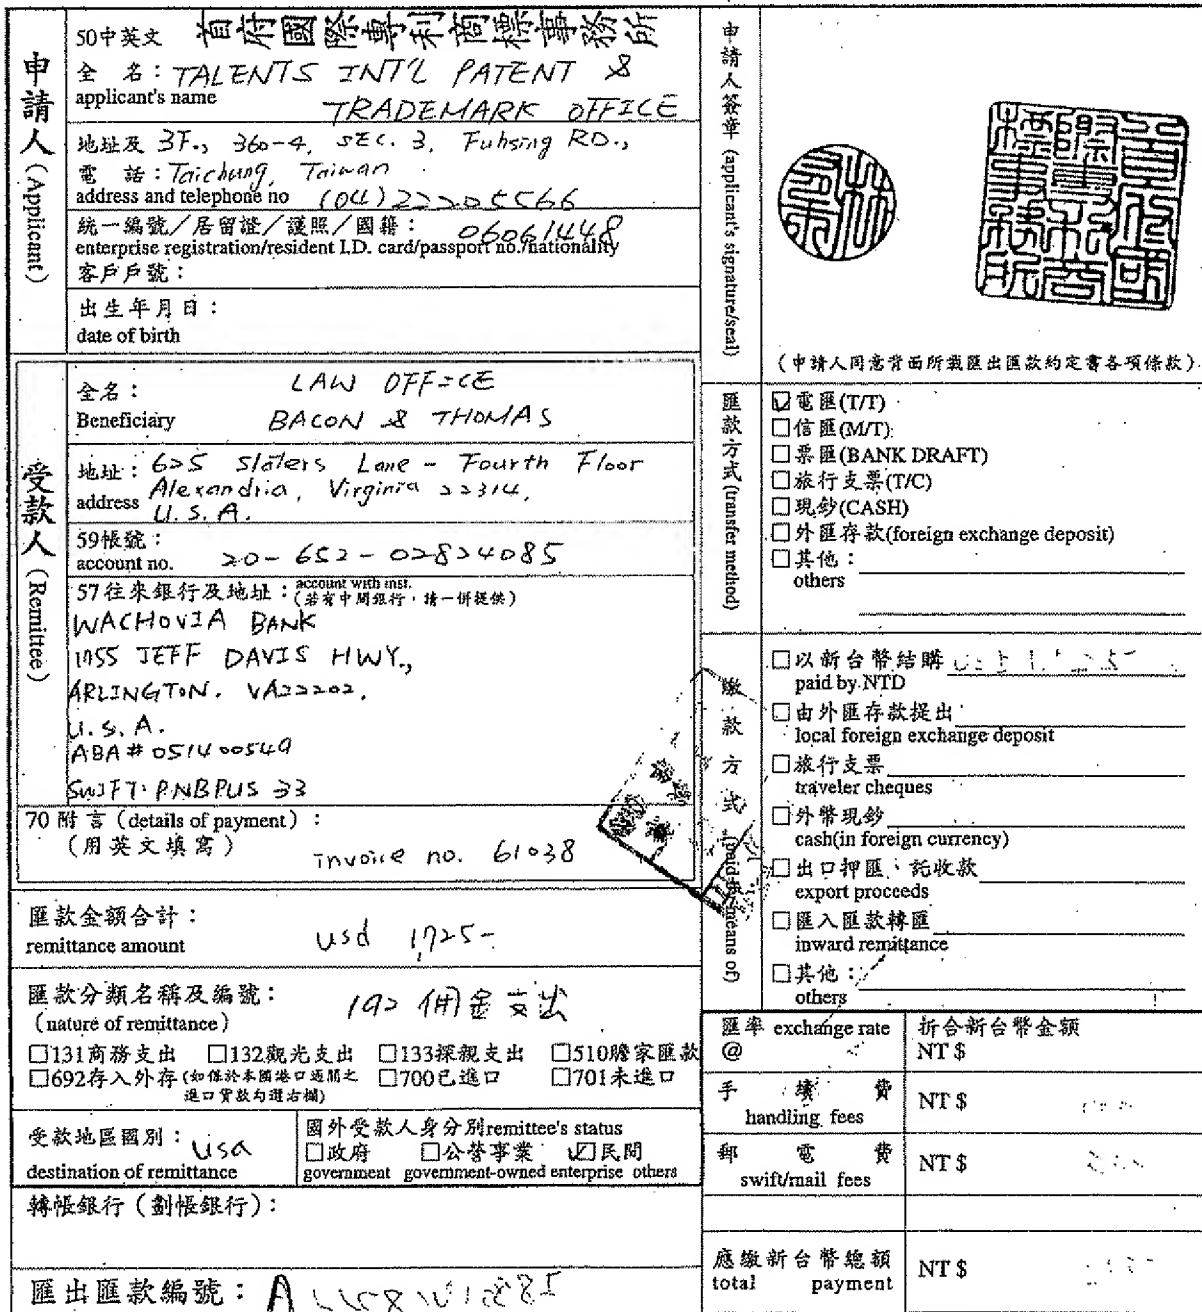 申請人(Applicant)
50中英文 首府國際專利商標事務所
全 名：TALENTS INT'L PATENT &
applicant's name TRADEMARK OFFICE
地址及 3F., 360-4, SEC. 3, Fuhsing RD.,
電 話：Taichung, Taiwan
address and telephone no (04)22205566
統一編號／居留證／護照／國籍： 06061448
enterprise registration/resident I.D. card/passport no./nationality
客戶戶號：
出生年月日：
date of birth
受款人(Remittee)
全名： LAW OFFICE
Beneficiary BACON & THOMAS
地址：625 Slaters Lane - Fourth Floor
address Alexandria, Virginia 22314,
U.S.A.
59帳號：
account no. 20-652-02824085
57往來銀行及地址：account with inst.
(若有中間銀行，請一併提供)
WACHOVIA BANK
1755 JEFF DAVIS HWY.,
ARLINGTON. VA22202,
U.S.A.
ABA# 051400549
SWIFT: PNBPUS 33
70 附言(details of payment)：
(用英文填寫) invoice no. 61038
匯款金額合計：
remittance amount usd 1,725-
匯款分類名稱及編號：
(nature of remittance) 192 佣金支出
□131商務支出 □132觀光支出 □133探親支出 □510贍家匯款
□692存入外存(如係於本國港口通關之進口貨款勾選右欄) □700已進口 □701未進口
受款地區國別：usa
destination of remittance
國外受款人身分別remittee's status
□政府 □公營事業 ☑民間
government government-owned enterprise others
轉帳銀行(劃帳銀行)：
匯出匯款編號：A
申請人簽章(applicant's signature/seal)
林
首府國際專利商標事務所
(申請人同意背面所載匯出匯款約定書各項條款)
匯款方式(transfer method)
☑電匯(T/T)
□信匯(M/T)
□票匯(BANK DRAFT)
□旅行支票(T/C)
□現鈔(CASH)
□外匯存款(foreign exchange deposit)
□其他：
others
繳款方式(paid by means of)
□以新台幣結購
paid by NTD
□由外匯存款提出
local foreign exchange deposit
□旅行支票
traveler cheques
□外幣現鈔
cash(in foreign currency)
□出口押匯、託收款
export proceeds
□匯入匯款轉匯
inward remittance
□其他：
others
匯率 exchange rate 折合新台幣金額
@ NT $
手續費 NT $
handling fees
郵電費 NT $
swift/mail fees
應繳新台幣總額 NT $
total payment